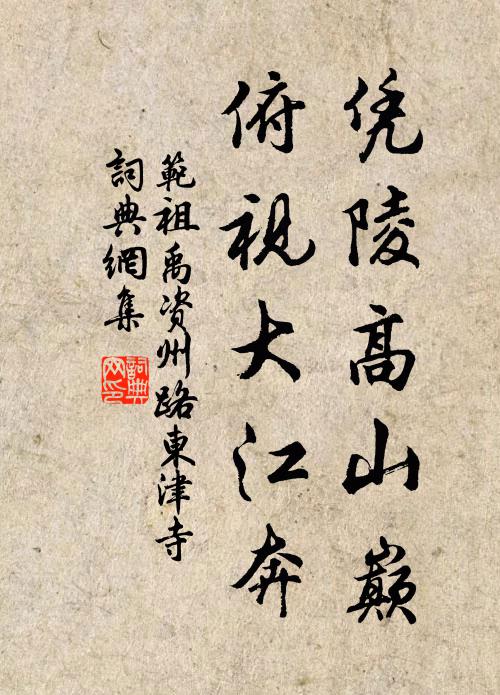 凭陵高山巅
俯视大江奔
範祖禹资州路東津寺
詞典網集
詞典网印